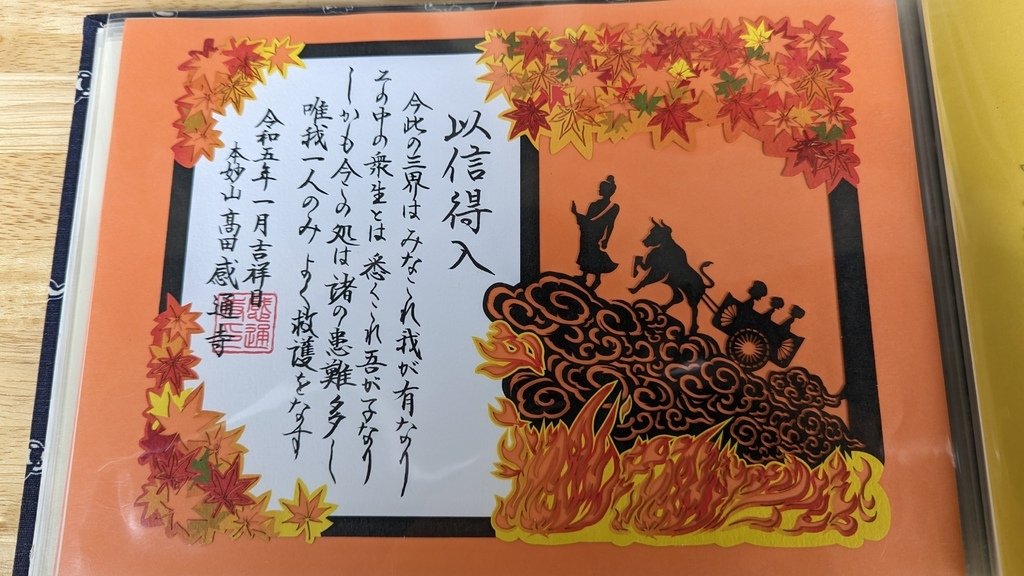 以信得入
今此の三界はみなこれ我が有なり
その中の衆生とは悉くこれ吾が子なり
しかも今この処は諸の患難多し
唯我一人のみよく救護をなす
令和五年一月吉祥日
本妙山髙田感通寺